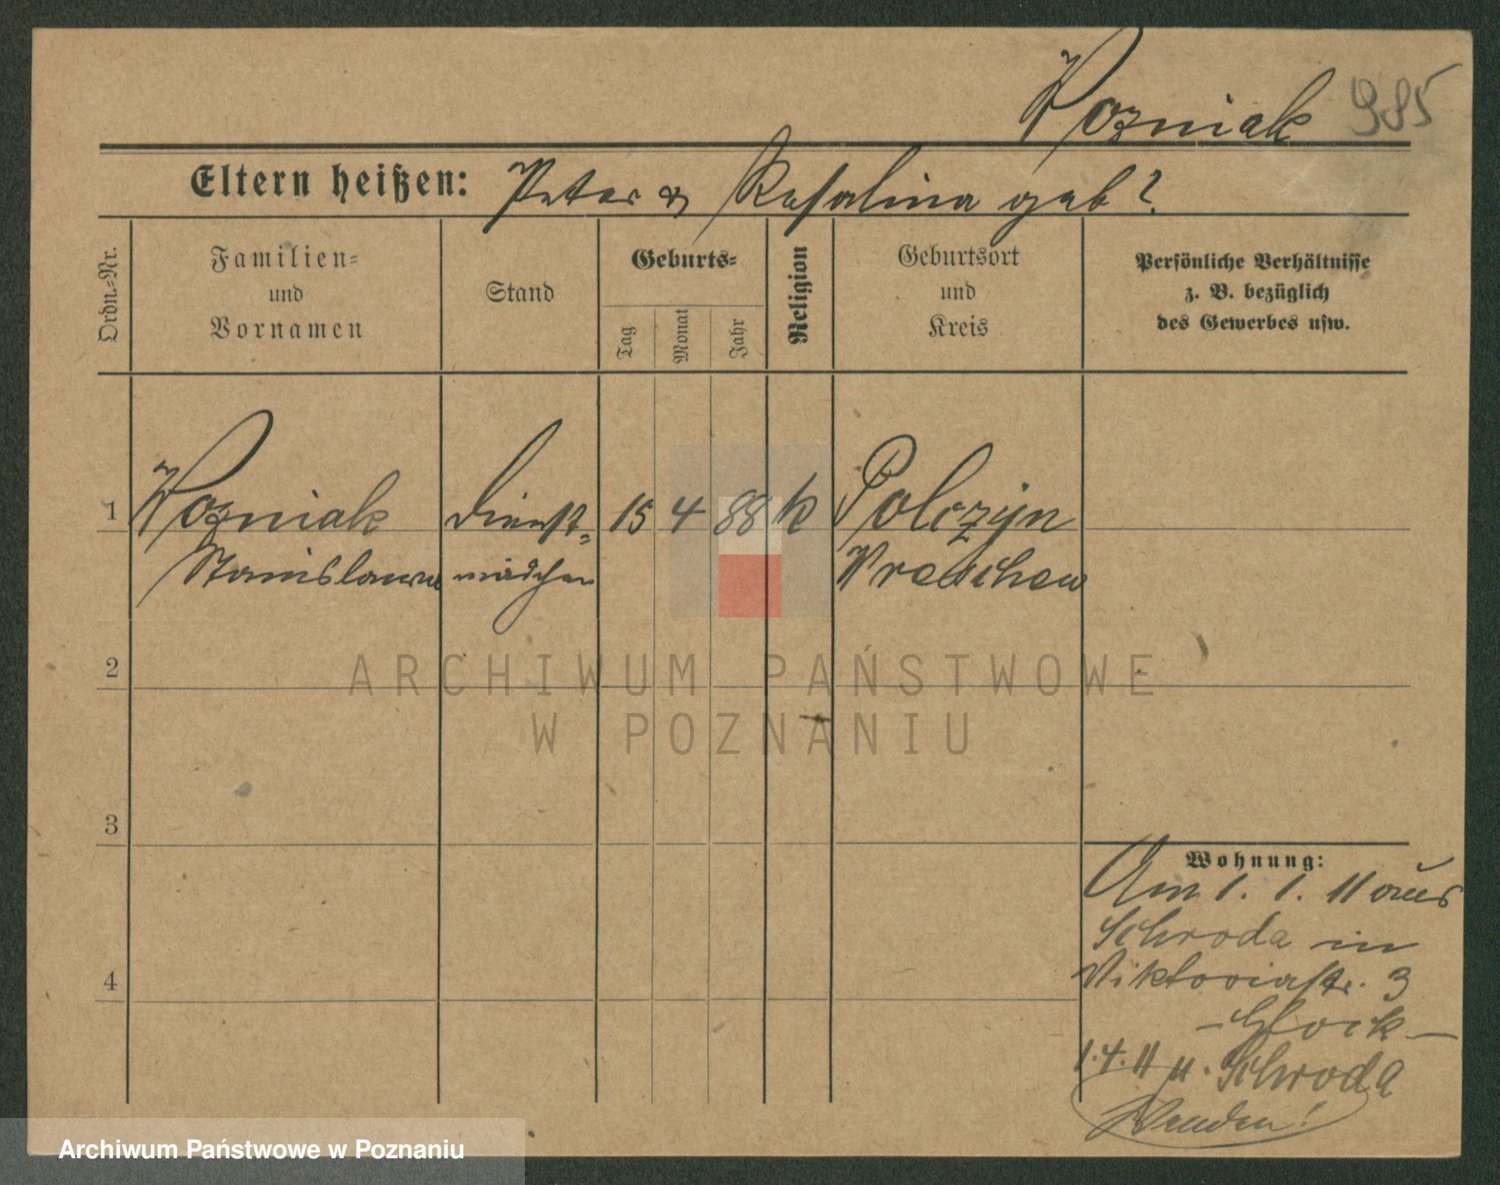 Wozniak 985
Eltern heißen: Peter & Rosalina geb?
Ordn.-Nr.
Familien-
und
Vornamen
Stand
Geburts-
Tag
Monat
Jahr
Religion
Geburtsort
und
Kreis
Persönliche Verhältnisse
z. B. bezüglich
des Gewerbes usw.
1 Wozniak Dienst- 15 4 88 k Polczyn
Stanislawa mädchen Wreschen
2
3
4
Wohnung:
Am 1. 1. 11 aus
Schroda in
Viktoriastr. 3
- Glock -
1.4.11 n. Schroda
Wenden!
ARCHIWUM PAŃSTWOWE
W POZNANIU
Archiwum Państwowe w Poznaniu